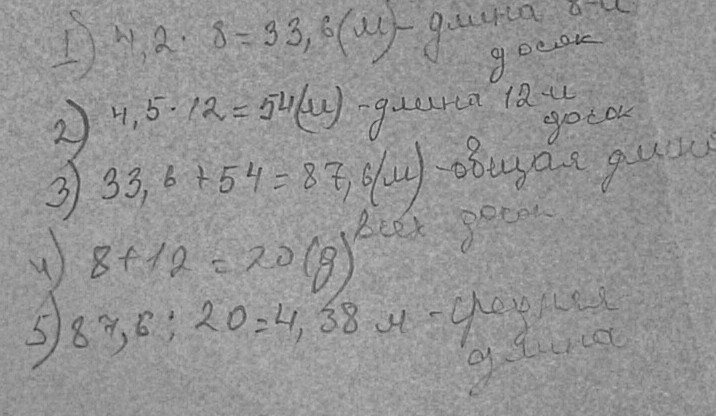 1) 4,2 · 8 = 33,6(м) - длина 8-и
досок
2) 4,5 · 12 = 54(м) - длина 12 и
досок
3) 33,6 + 54 = 87,6(м) - общая длина
всех досок
4) 8 + 12 = 20(д)
5) 87,6 : 20 = 4,38 м - средняя
длина